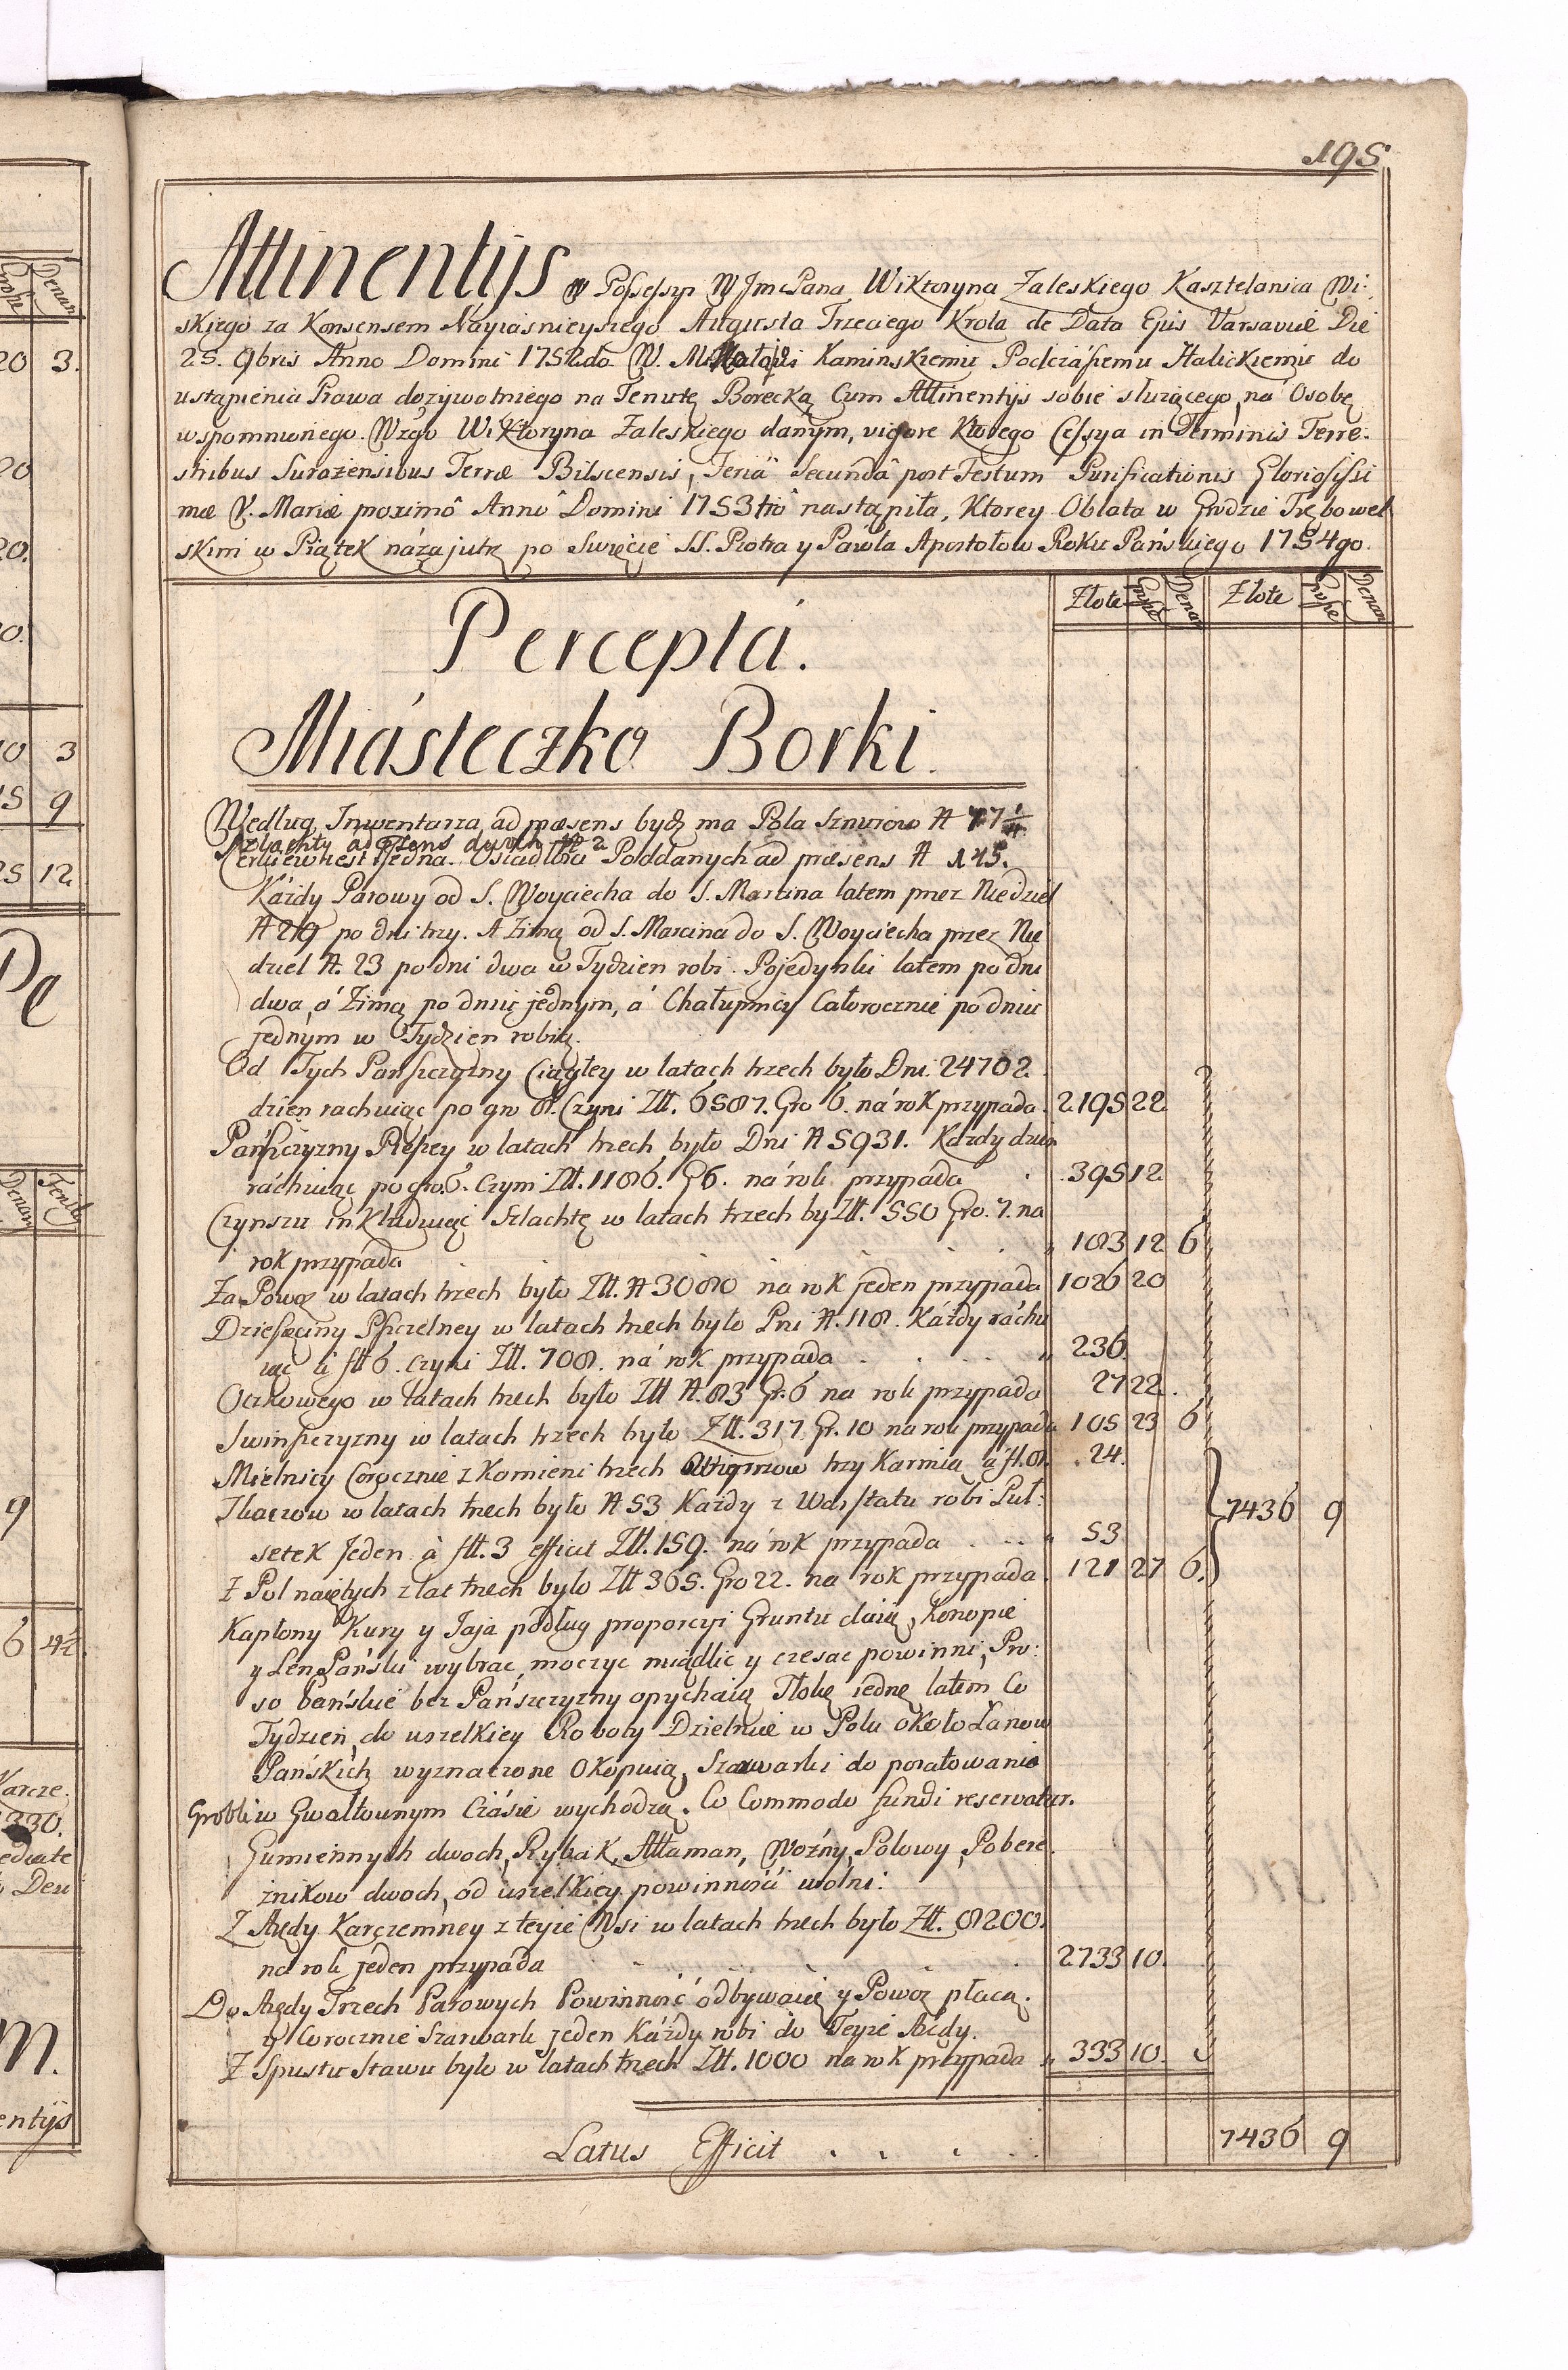 195
Attinentijs w Possessyi W JmcPana Wiktoryna Zaleskiego Kasztelanica Wi:
skiego za Konsensem Nayiasnieyszego Augusta Trzeciego Krola de Data Ejus Varsaviæ Die
25. 9bris Anno Domini 1752do W. Kaminskiemu Podczaszemu Halickiemu do
ustąpienia Prawa dozywotniego na Tenutę Borecką Cum Attinentijs sobie służącego, ná Osobę
wspomnionego Wzgo Wiktoryna Zaleskiego danym, vigore Ktorego Cessya in Terminis Terre:
stribus Surazensibus Terræ Bilscensis, Feriâ Secundâ post Festum Purificationis Gloriosissi
mæ V. Mariæ proximô Annô Domini 1753tiô nastąpiła, Ktorey Oblata w Grodzie Trębowel
skim w Piątek názajutrz po Swięcie SS. Piotra y Páwła Apostołow Roku Pańskiego 1754go.
Złote Grosze Denar Złote Grosze Denar
Perceptá.
Miásteczko Borki.
Według Inwentarza ad præsens bydź ma Pola Sznurow
Szlachty ad præsens dwoch № 2
Cerkiew jest Jedna. Osiadłości Poddanych ad præsens № 145.
Káżdy Parowy od S. Woyciecha do S. Marcina latem przez Niedziel
№ 29 po dni trzy. A Zimą od S. Marcina do S. Woyciecha przez Nie
dziel №. 23 po dni dwa w Tydzien robi. Pojedynki latem po dni
dwa, á Zimą po dniu jednym, á Chałupnicy Całorocznie po dniu
jednym w Tydzien robią.
Od Tych Pańszczyzny Ciągłey w latach trzech było Dni 24702.
dzien rachuiąc po gro 8. Czyni Złt. 6587. Gro 6. ná rok przypada. 2195 22
Pańszczyzny Pieszey w latach trzech było Dni № 5931. Każdy dzien
ráchuiąc po gro. 6. Czyni Złt. 1186. G 6. ná rok przypáda 395 12
Czynszu inkluduiąc Szlachtę w latach trzech by Złt. 550 Gro. 7. na
rok przypada 183 12 6
Za Powoz w latach trzech było Złt. № 3080 na rok jeden przypada 1026 20
Dziesięciny Pszczelney w latach trzech było Pni №. 118. Káżdy ráchu
iąc à flt 6. czyni Złt. 708. ná rok przypada 236.
Oczkowego w latach trzech było Złt №. 83 Gr. 6 na rok przypada 27 22.
Swinszczyzny w latach trzech było Złt. 317. Gr. 10 na rok przypada 105 23 6
Mielnicy Corocznie z Kamieni trzech Wieprzow trzy Karmią à fl. 8. 24.
Tkaczow w latach trzech było № 53 Każdy z Warsztatu robi Puł:
setek Jeden à flt. 3 efficit Złt. 159. ná rok przypada 53
Z Pol naiętych z lat trzech było Złt 365. Gro 22. na rok przypada. 121 27 6.
7436 9
Kapłony Kury y Jaja podług proporcyi Gruntu daią, Konopie
y Len Pański wybrac, moczyc miądlic y czesac powinni, Pro:
so Pańskie bez Pańszczyzny opychaią Tłokę iednę latem Co
Tydzien, do wszelkiey Roboty Dzielnice w Polu około Łanow
Pańskich wyznaczone Okopuią, Szarwarki do poratowania
Grobli w Gwałtownym Czásie wychodzą. Co Commodo fundi reservatur.
Gumiennych dwoch, Rybak, Attaman, Woźny, Polowy, Pobere:
żnikow dwoch, od wszelkiey powinności wolni.
Z Arędy Karczemney z teyże Wsi w latach trzech było Złt. 8200.
na rok jeden przypáda 2733 10.
Do Arędy Trzech Parowych Powinność odbywaią y Powoz płacą.
y Corocznie Szarwark jeden Káżdy robi do Teyże Arędy.
Z Spustu Stawu było w latach trzech Złt. 1000 na rok przypada 333 10.
Latus Efficit 7436 9